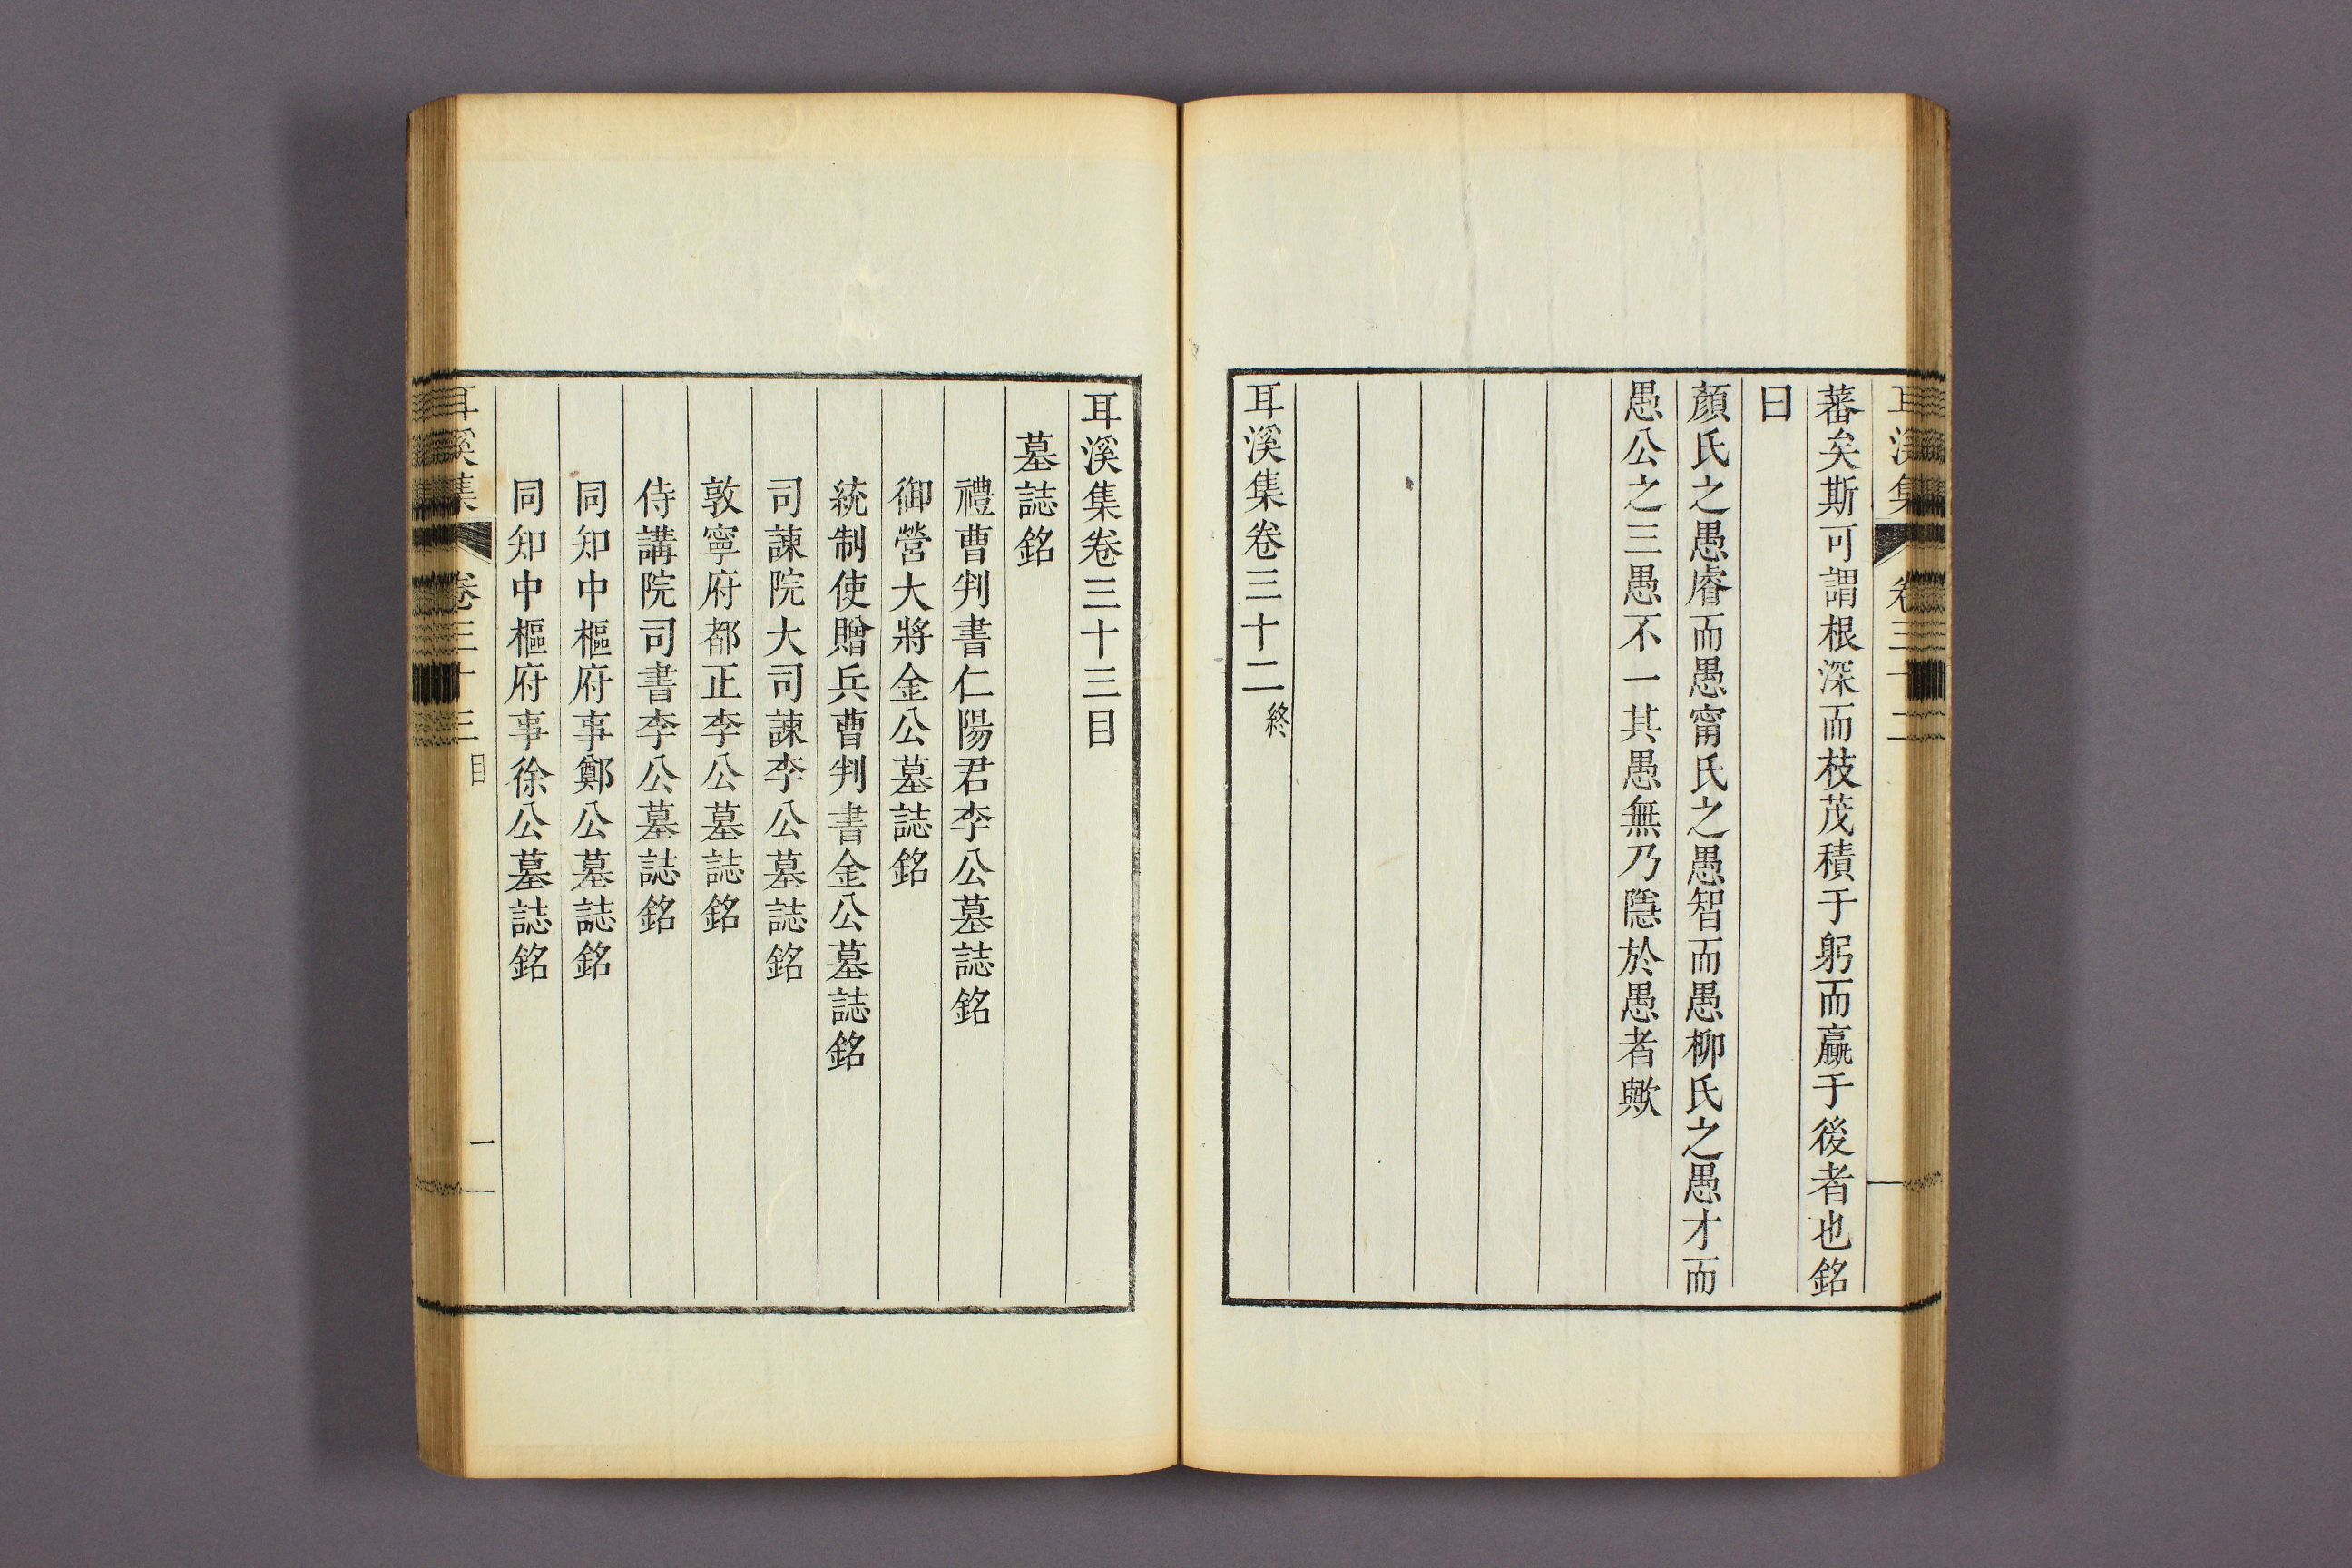 蕃矣斯可謂根深而枝茂積于躬而贏于後者也銘
曰
顏氏之愚睿而愚甯氏之愚智而愚柳氏之愚才而
愚公之三愚不一其愚無乃隱於愚者歟
耳溪集卷三十二 終
耳溪集卷三十三目
墓誌銘
禮曹判書仁陽君李公墓誌銘
御營大將金公墓誌銘
統制使贈兵曹判書金公墓誌銘
司諫院大司諫李公墓誌銘
敦寧府都正李公墓誌銘
侍講院司書李公墓誌銘
同知中樞府事鄭公墓誌銘
同知中樞府事徐公墓誌銘
耳溪集 卷三十三 目 一